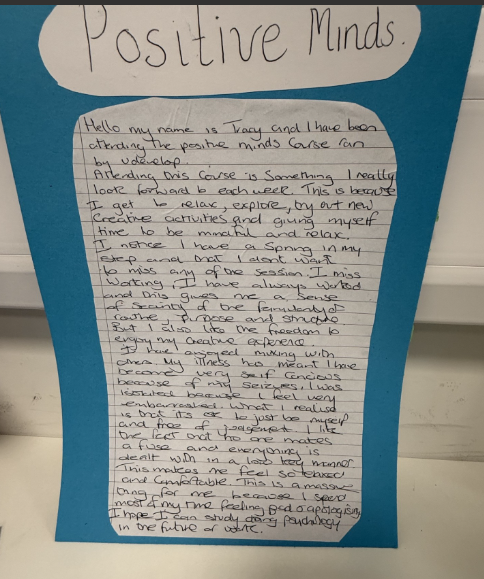 Positive Minds.
Hello my name is Tracy and I have been
attending the positive minds Course ran
by udevelop.
Attending this Course is Something I really
look forward to each week. This is because
I get to relax, explore, try out new
Creative activities and giving myself
time to be mindful and relax.
I notice I have a Spring in my
step and that I dont want
to miss any of the session. I miss
working, I have always worked
and this gives me a sense
of security of the familiarity of
routine, purpose and structure
But I also like the freedom to
enjoy my creative experience.
I have enjoyed mixing with
others. My illness has meant I have
become very self concious
because of my seizures. I was
isolated because I feel very
embarrassed. What I realise
is that it's ok to just be myself
and free of judgement. I like
the fact that no one makes
a fuse and everything is
dealt with in a low key manner.
This makes me feel so
and Comfortable. This is a massive
thing for me because I spend
most of my time feeling bad & apologising
I hope I can study psychology
in the future at